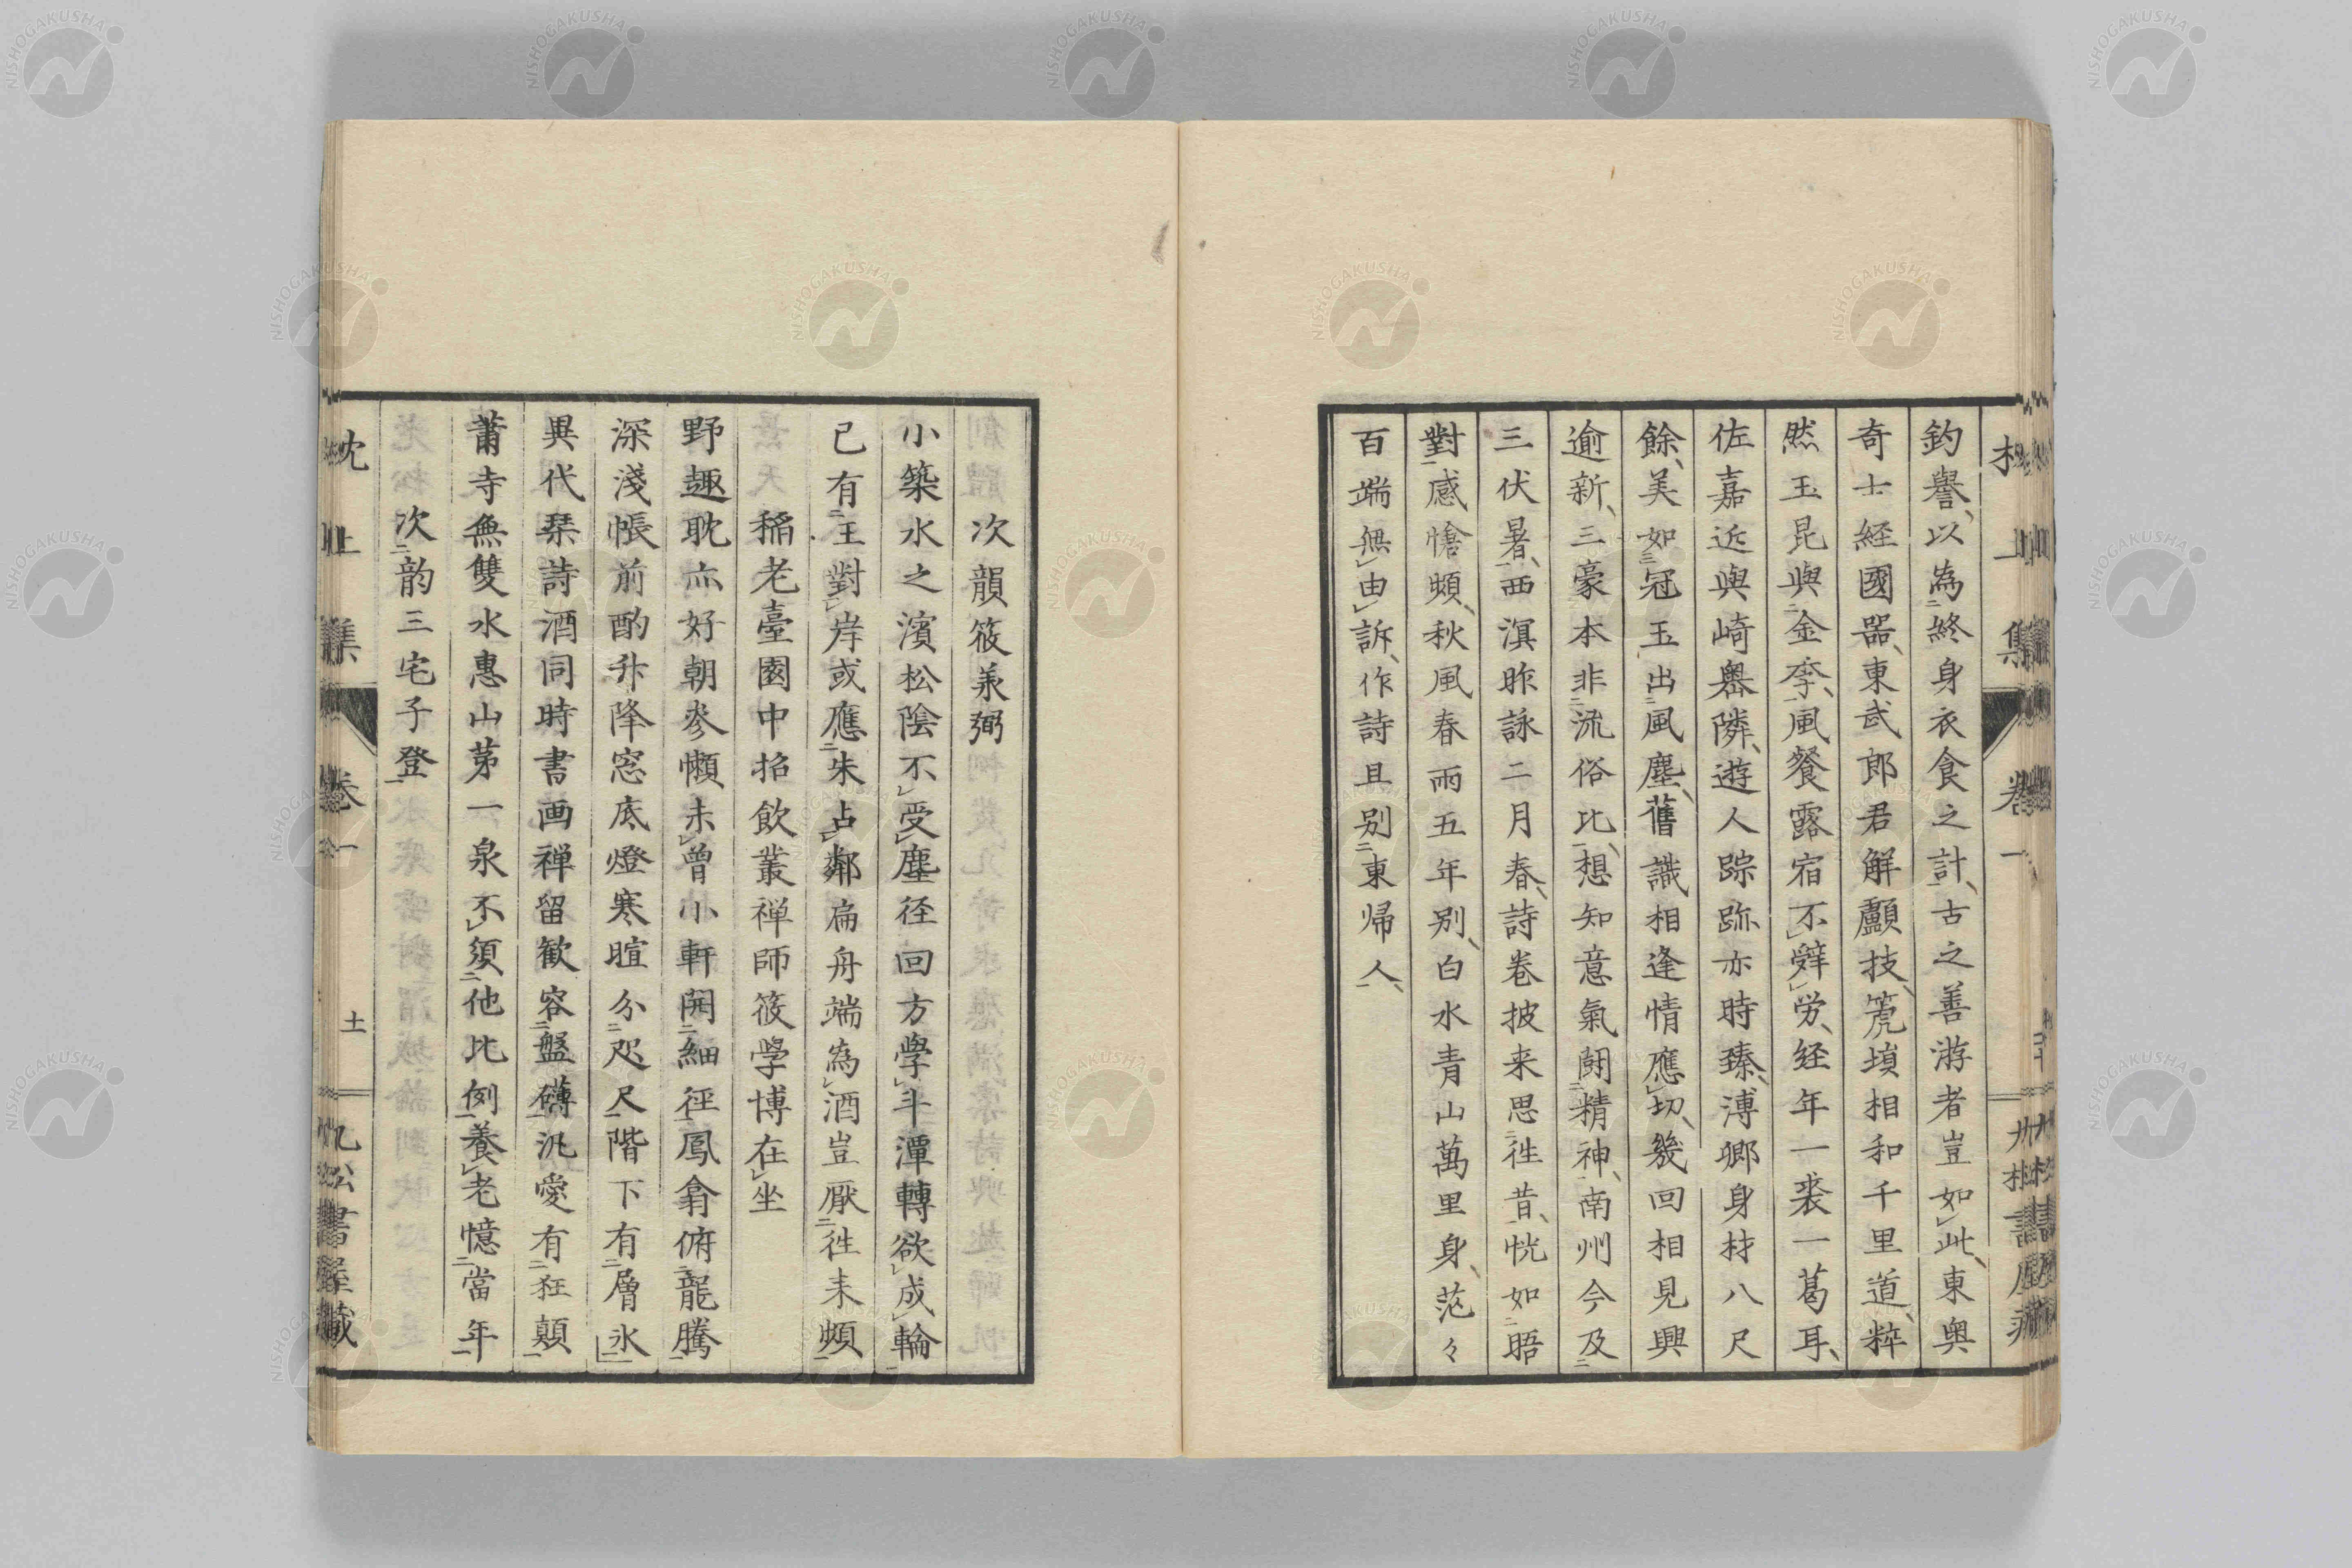 釣譽以為終身衣食之計古之善游者豈如此東奥
奇士経國器東武郎君解顱技箎塤相和千里道粹
然玉昆與金李風餐露宿不辤労経年一裘一葛耳
佐嘉近與崎嶴隣遊人踪跡亦時臻溥郷身材八尺
餘美如冠玉出風塵舊識相逢情應切幾回相見興
逾新三豪本非流俗比想知意氣闘精神南州今及
三伏暑西溟昨詠二月春詩巻披来思徃昔恍如晤
對感愴頻秋風春雨五年別白水青山萬里身茫々
百端無由訴作詩且別東帰人
次韻筱承弼
小築水之濱松陰不受塵径回方學斗潭轉欲成輪
已有王對岸或應朱占鄰扁舟端為酒豈厭徃来頻
稲老臺園中招飲叢禅師筱學博在坐
野趣耽亦好朝参懶未曽小軒開細径鳳翕俯龍騰
深淺帳前酌升降窓底燈寒暄分咫尺階下有層氷
異代琹詩酒同時書画禅留歓容盤礴汎愛有狂顛
莆寺無雙水惠山茅一泉不須他比例養老憶當年
次韵三宅子登
枕上集
巻一
土
九松書屋藏
NISHOGAKUSHA